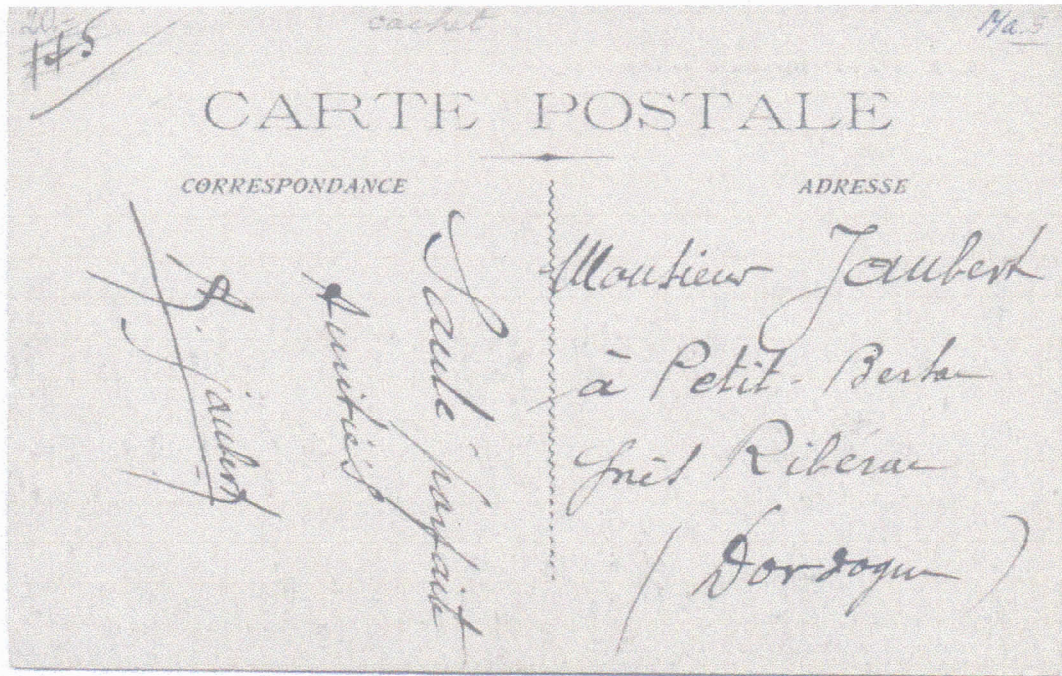 20.-
cachet
Ma.5
CARTE POSTALE
CORRESPONDANCE
Santé parfaite
Amitiés
A. Jaubert
ADRESSE
Monsieur Jaubert
à Petit-Bersac
près Ribérac
(Dordogne)